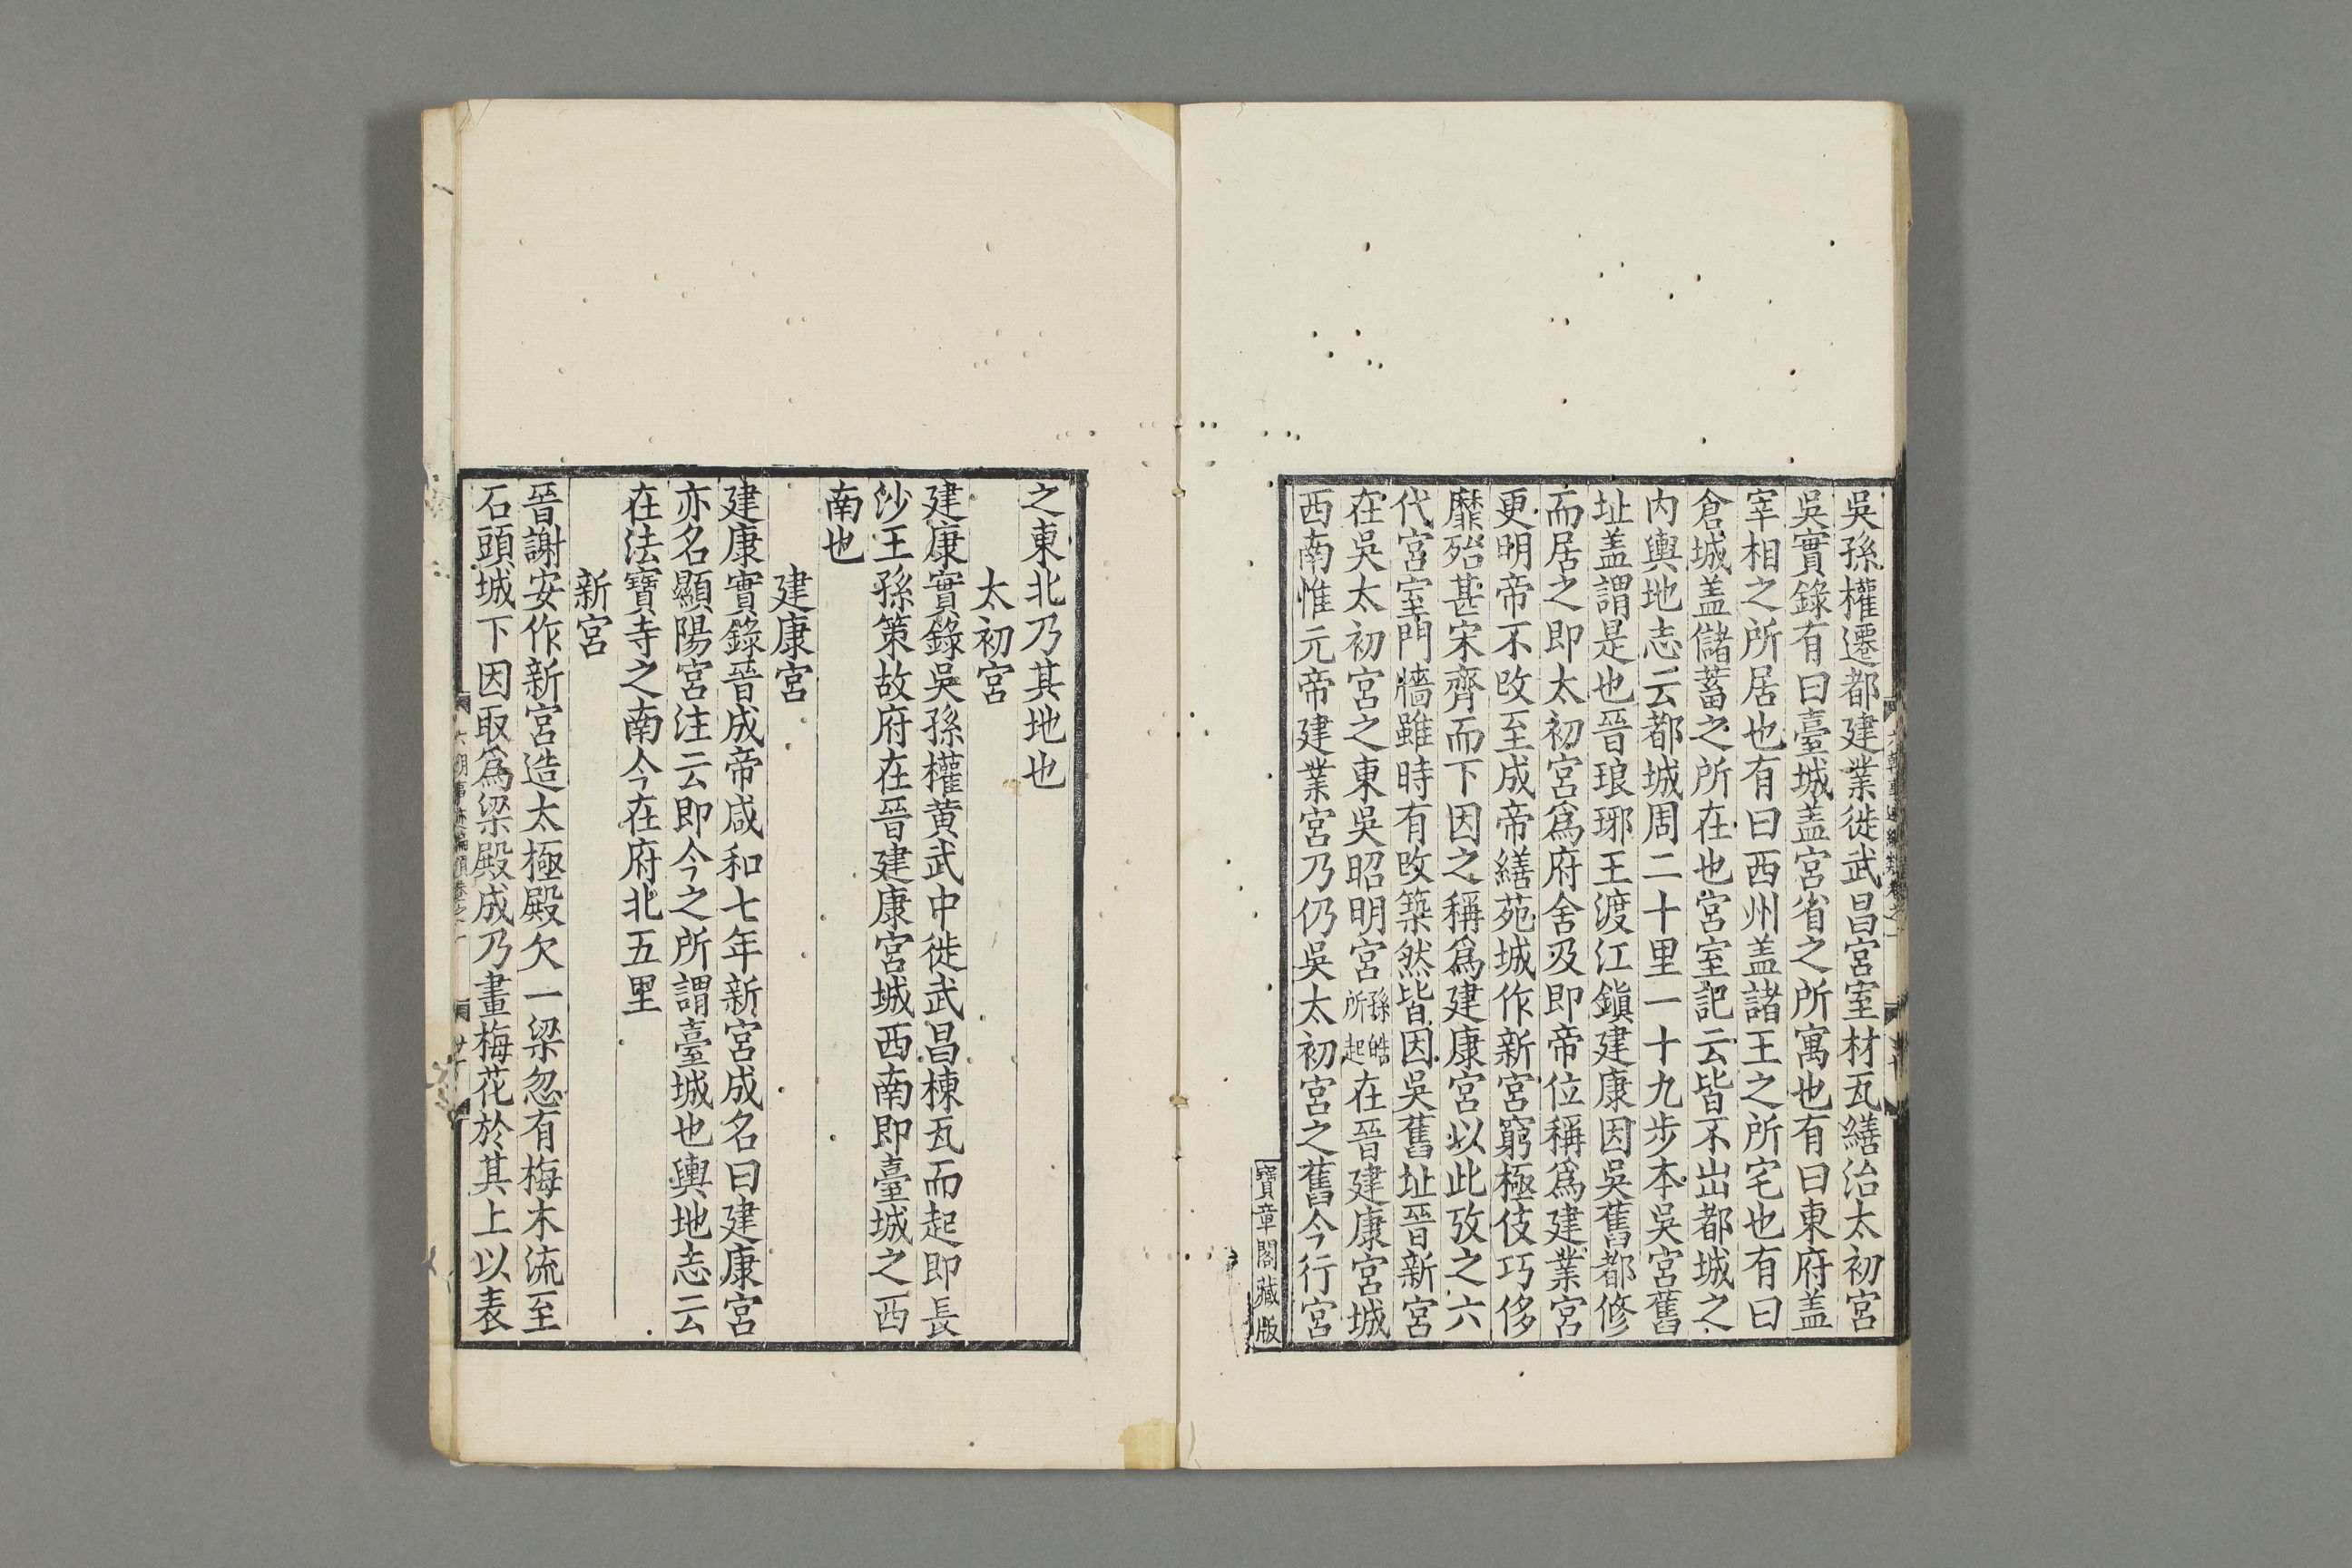 吳孫權遷都建業徙武昌宮室材瓦繕治太初宮
吳實錄有曰臺城盖宮省之所寓也有曰東府盖
宰相之所居也有曰西州盖諸王之所宅也有曰
倉城盖儲蓄之所在也宮室記云皆不出都城之
内輿地志云都城周二十里一十九步本吳宮舊
址盖謂是也晉琅琊王渡江鎭建康因吳舊都修
而居之即太初宮爲府舍及即帝位稱爲建業宮
更明帝不改至成帝繕苑城作新宮窮極伎巧侈
靡殆甚宋齊而下因之稱爲建康宮以此攷之六
代宮室門墻雖時有改築然皆因吳舊址晉新宮
在吳太初宮之東吳昭明宮孫皓所起在晉建康宮城
西南惟元帝建業宮乃仍吳太初宮之舊今行宮
寶章閣藏版
之東北乃其地也
太初宮
建康實錄吳孫權黃武中徙武昌棟瓦而起即長
沙王孫策故府在晉建康宮城西南即臺城之西
南也
建康宮
建康實錄晉成帝咸和七年新宮成名曰建康宮
亦名顯陽宮注云即今之所謂臺城也輿地志云
在法寶寺之南今在府北五里
新宮
晉謝安作新宮造太極殿欠一梁忽有梅木流至
石頭城下因取爲梁殿成乃畫梅花於其上以表
六朝事迹編類卷之一